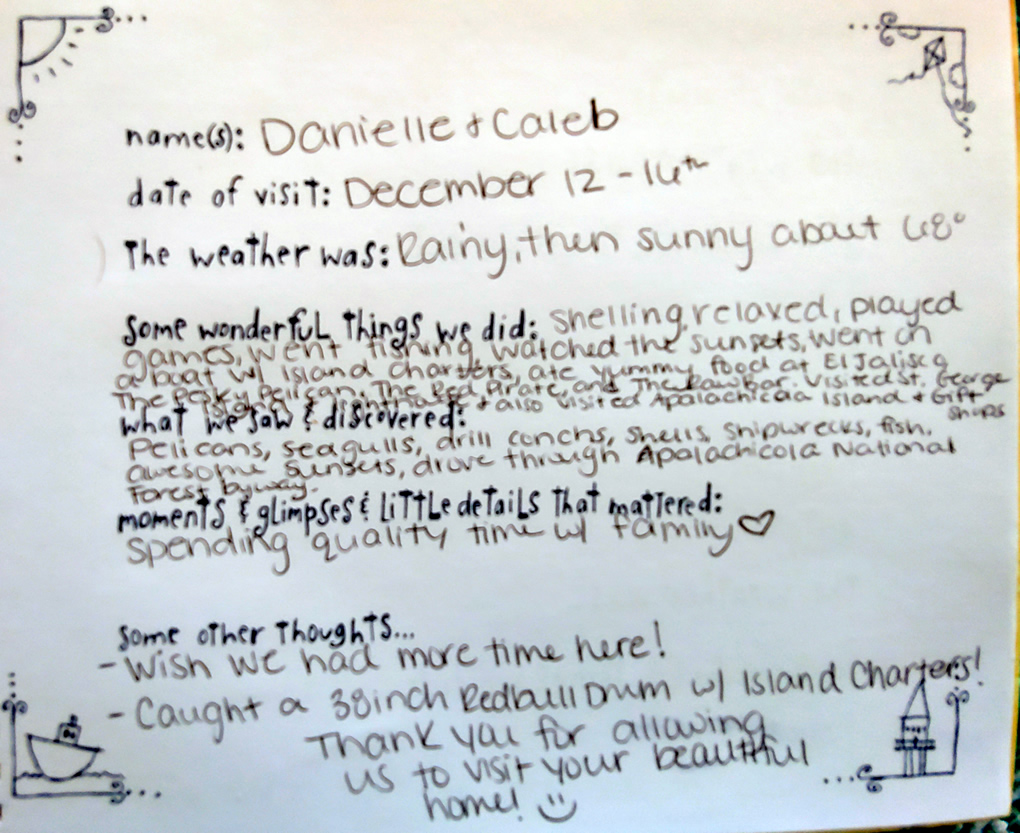 name(s): Danielle & Caleb
date of visit: December 12 - 16th
The weather was: Rainy, then sunny about 68°
Some wonderful things we did: Shelling, relaxed, played
games, went fishing, watched the sunsets, went on
a boat w/ Island Charters, ate yummy food at El Jalisco,
The Pesky Pelican, The Red Pirate, and The Raw Bar. Visited St. George
Island & also visited Apalachicola Island & Gift
Shops
what we saw & discovered:
Pelicans, seagulls, drill conchs, shells, shipwrecks, fish,
awesome sunsets, drove through Apalachicola National
Forest byway.
moments & glimpses & little details that mattered:
spending quality time w/ family ♡
some other thoughts...
- Wish we had more time here!
- Caught a 38inch Redbull Drum w/ Island Charters!
Thank you for allowing
us to visit your beautiful
home! :)